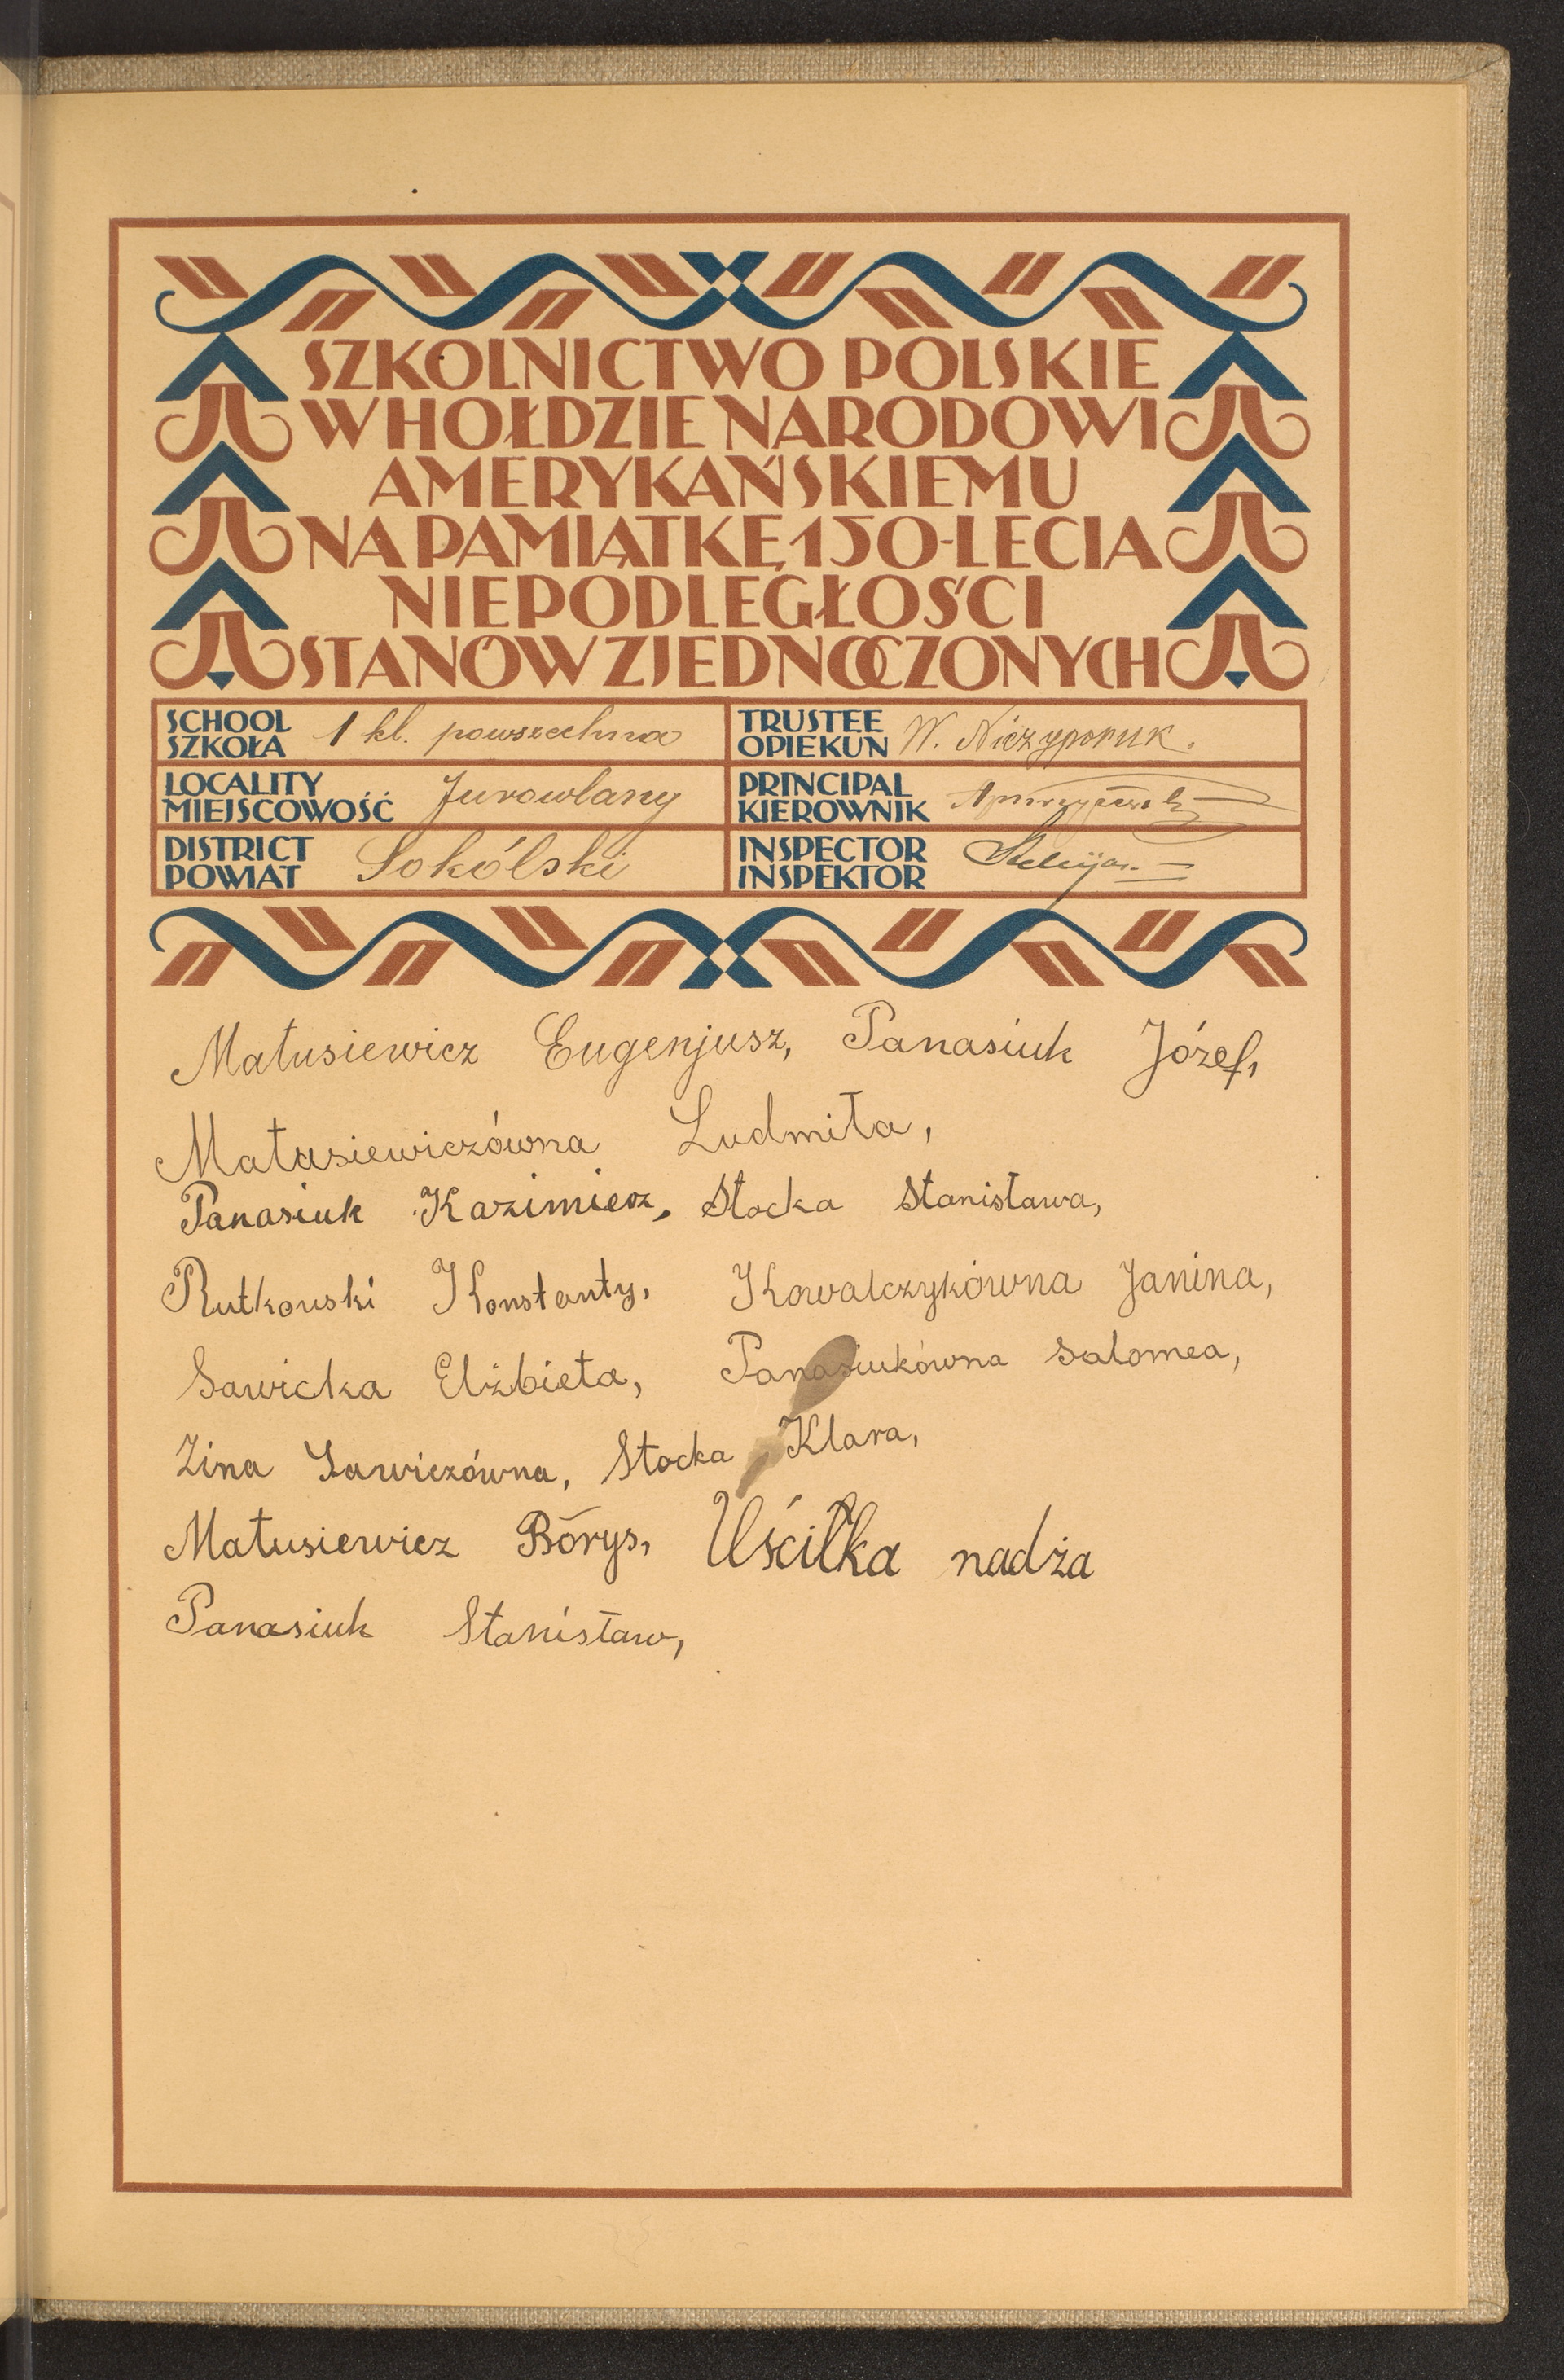 SZKOLNICTWO POLSKIE
W HOŁDZIE NARODOWI
AMERYKAŃSKIEMU
NA PAMIĄTKĘ 150-LECIA
NIEPODLEGŁOŚCI
STANÓW ZJEDNOCZONYCH
SCHOOL
SZKOŁA 1 kl. powszechna
TRUSTEE
OPIEKUN W. Niczyporuk.
LOCALITY
MIEJSCOWOŚĆ Jurowlany
PRINCIPAL
KIEROWNIK
DISTRICT
POWIAT Sokólski
INSPECTOR
INSPEKTOR
Matusiewicz Eugenjusz, Panasiuk Józef,
Matusiewiczówna Ludmiła,
Panasiuk Kazimierz, Stocka Stanisława,
Rutkowski Konstanty, Kowalczykówna Janina,
Sawicka Elżbieta, Panasiukówna Salomea,
Zina Sawiczówna, Stocka Klara,
Matusiewicz Borys, Uściłka nadźa
Panasiuk Stanisław,